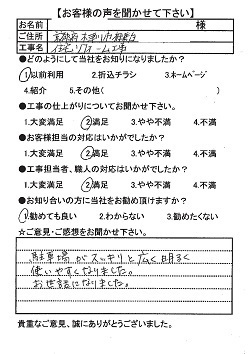 【お客様の声を聞かせて下さい】
お名前 様
ご住所 京都府木津川市
工事名 住宅リフォーム工事
●どのようにして当社をお知りになりましたか？
1.以前利用 2.折込チラシ 3.ホームページ
4.紹介 5.その他( )
●工事の仕上がりについてお聞かせ下さい。
1.大変満足 2.満足 3.やや不満 4.不満
●お客様担当の対応はいかがでしたか？
1.大変満足 2.満足 3.やや不満 4.不満
●工事担当者、職人の対応はいかがでしたか？
1.大変満足 2.満足 3.やや不満 4.不満
●お知り合いの方に当社をお勧め頂けますか？
1.勧めても良い 2.わからない 3.勧めたくない
☆ご意見・ご感想をお聞かせ下さい。
駐車場がスッキリと広く明るく
使いやすくなりました。
お世話になりました。
貴重なご意見、誠にありがとうございました。